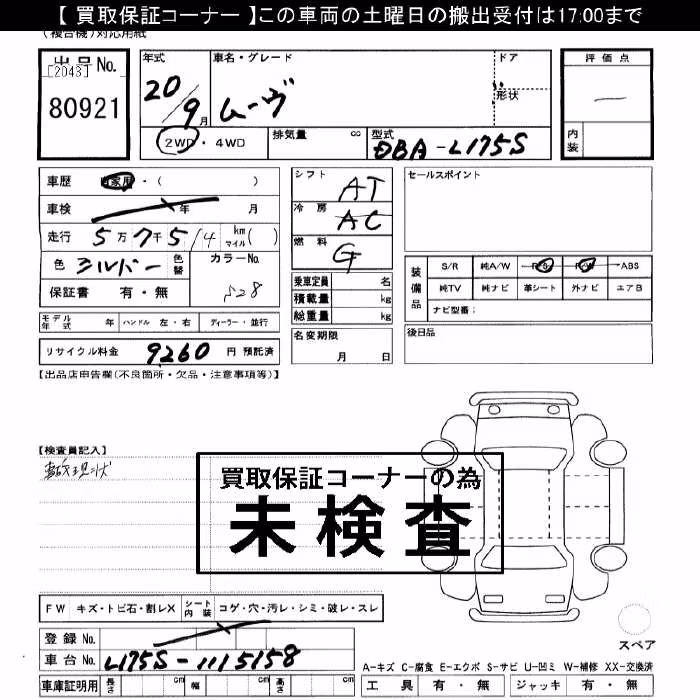 【 買取保証コーナー 】この車両の土曜日の搬出受付は17:00まで
(複合機)対応用紙
出品No.
[2043]
80921
年式
20/9月
車名・グレード
ムーヴ
ドア
形状
評価点
内装
2WD・4WD
排気量 cc
型式
DBA-L175S
車歴 自家用・( )
車検 年 月
走行 5万7千5/4 km マイル( )
色 シルバー 色替
カラーNo.
S28
保証書 有・無
シフト AT
冷房 AC
燃料 G
乗車定員 名
積載量 kg
総重量 kg
名変期限
月 日
セールスポイント
装備品
S/R 純A/W P/S P/W ABS
純TV 純ナビ 革シート 外ナビ エアB
ナビ型番:
後日品
モデル年式 年 ハンドル 左・右 ディーラー・並行
リサイクル料金 9260 円 預託済
【出品店申告欄(不良箇所・欠品・注意事項等)】
【検査員記入】
現状
買取保証コーナーの為
未検査
FW キズ・トビ石・割レX シート内装 コゲ・穴・汚レ・シミ・破レ・スレ
登録No.
車台No. L175S-1115158
車庫証明用 長さ cm 幅 cm 高さ cm
スペア
A-キズ C-腐食 E-エクボ S-サビ U-凹ミ W-補修 XX-交換済
工具 有・無 ジャッキ 有・無